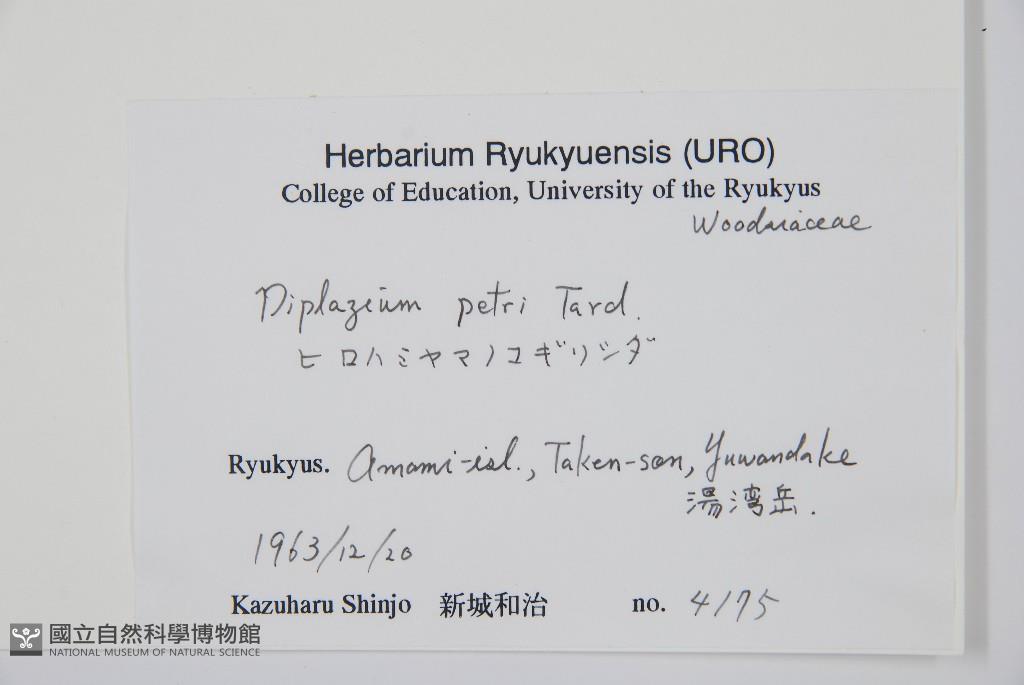 Herbarium Ryukyuensis (URO)
College of Education, University of the Ryukyus
Woodsiaceae
Diplazium petri Tard.
ヒロハミヤマノコギリシダ
Ryukyus. Amami-isl., Taken-son, Yuwandake
湯湾岳.
1963/12/20
Kazuharu Shinjo 新城和治 no. 4175
國立自然科學博物館
NATIONAL MUSEUM OF NATURAL SCIENCE